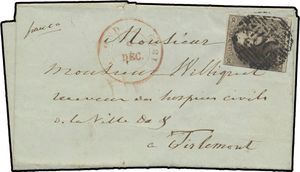 franco
Monsieur
DEC.
Monsieur Willignet
receveur des hospices civils
de la Ville de &
a Tirlemont